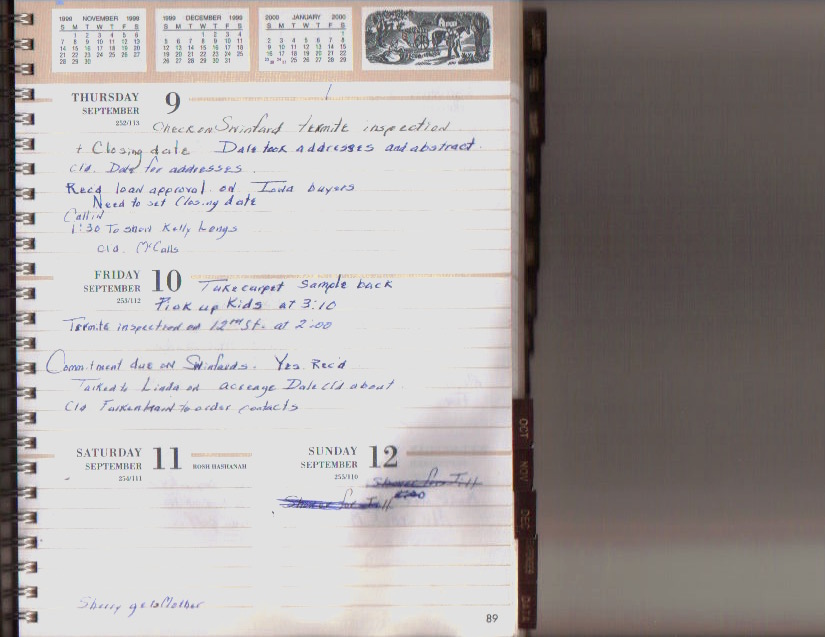 1999 NOVEMBER 1999
S M T W T F S
1 2 3 4 5 6
7 8 9 10 11 12 13
14 15 16 17 18 19 20
21 22 23 24 25 26 27
28 29 30
1999 DECEMBER 1999
S M T W T F S
1 2 3 4
5 6 7 8 9 10 11
12 13 14 15 16 17 18
19 20 21 22 23 24 25
26 27 28 29 30 31
2000 JANUARY 2000
S M T W T F S
1
2 3 4 5 6 7 8
9 10 11 12 13 14 15
16 17 18 19 20 21 22
23 30 24 31 25 26 27 28 29
THURSDAY 9
SEPTEMBER
252/113
Check on Swinford termite inspection
+ Closing date Dale took addresses and abstract.
Cld. Dale for addresses.
Recd loan approval on Iowa buyers
Need to set Closing date
Call in
1:30 To show Kelly Longs
Cld. McCalls
FRIDAY 10
SEPTEMBER
253/112
Take carpet sample back
Pick up Kids at 3:10
Termite inspection on 12th St. at 2:00
Commitment due on Swinfords. Yes. Rec'd
Talked to Linda on acreage Dale cld about
Cld to order contacts
SATURDAY 11 ROSH HASHANAH
SEPTEMBER
254/111
Sherry gets Mother
SUNDAY 12
SEPTEMBER
255/110
Shower for
Shower for
2:00
OCT
NOV
DEC
DATA
89